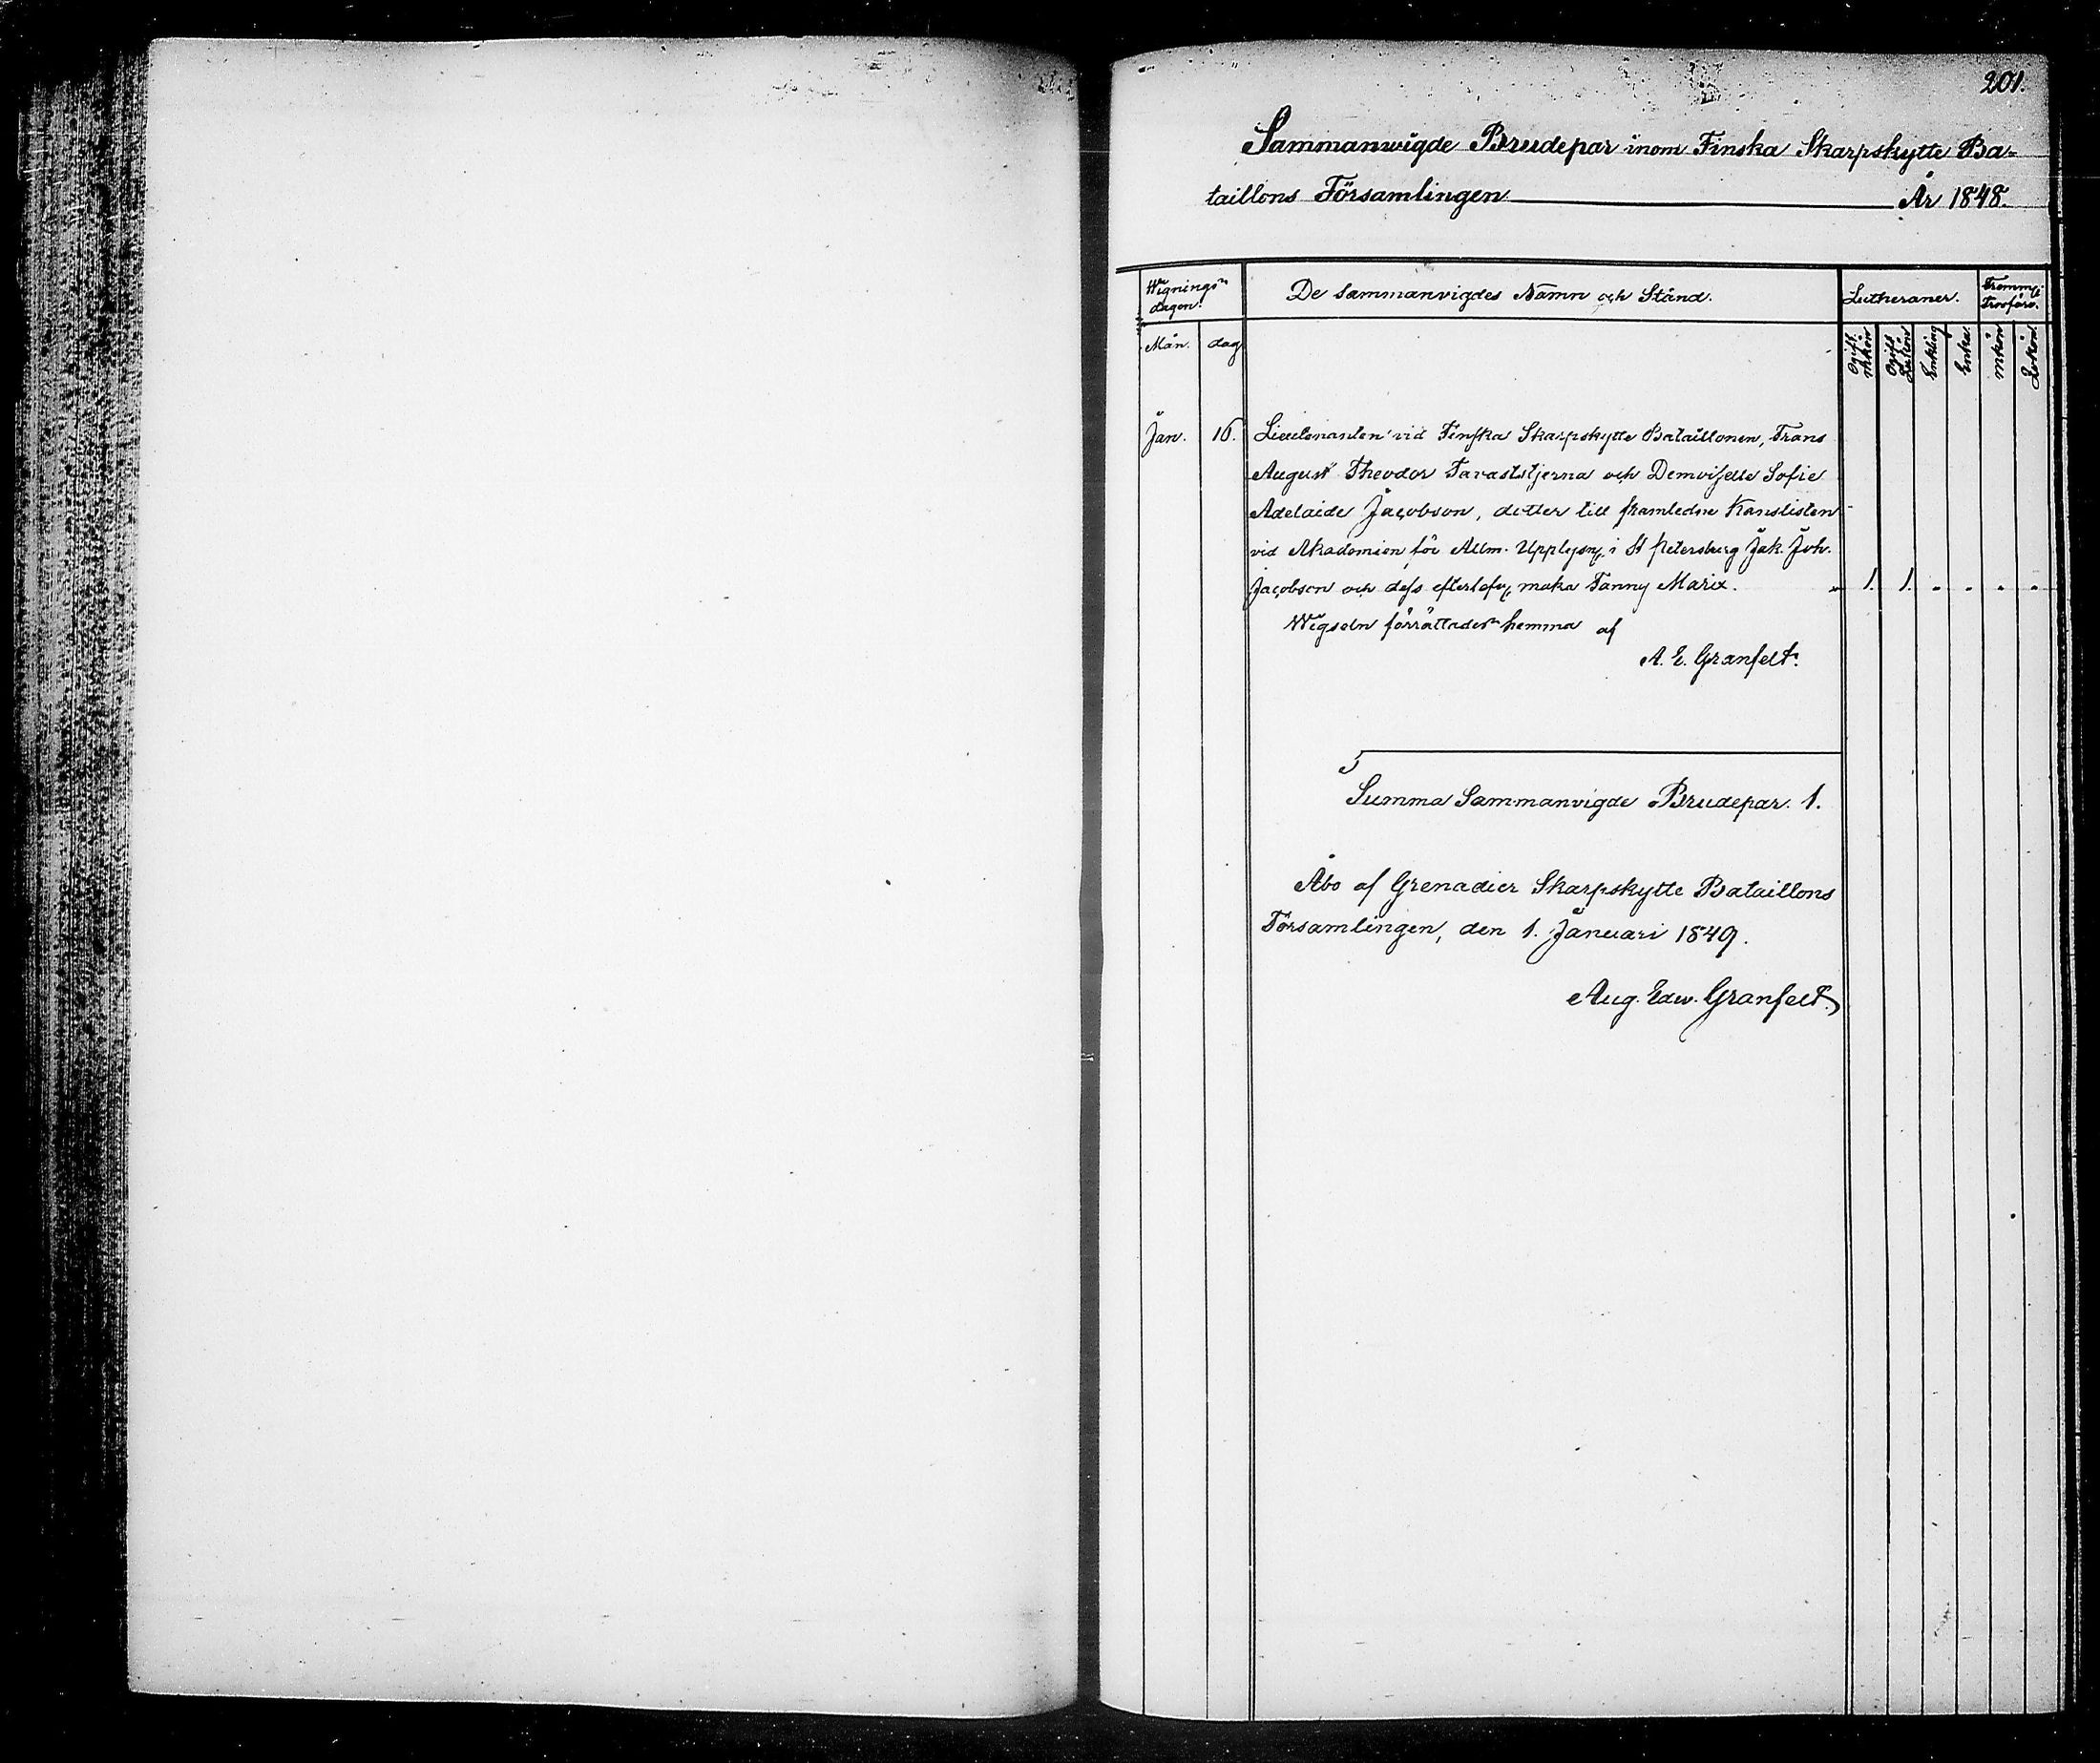 201.
Sammanwigde Brudepar inom Finska Skarpskytte Ba-
taillons Församlingen År 1848.
Wignings-
dagen.
De sammanvigdes Namn och Stånd.
Lutheraner.
Främm:
Trosförv.
Mån.
dag
Ogift
Mkön
Ogift
Qvkön
Enkling
Enka.
Mkön
Qvkön
Jan. 16. Lieutenanten vid Finska Skarpskytte Bataillonen, Frans
August Theodor Tavaststjerna och Demoiselle Sofie
Adelaide Jacobson, dotter till framledne Kanslisten
vid Akademien för Allm. Upplysn. i St Petersburg Jak. Joh.
Jacobson och dess efterlefv. maka Fanny Marix. " 1. 1. . . . .
Wigseln förrättades hemma af
A. E. Granfelt.
Summa Sammanvigde Brudepar. 1.
Åbo af Grenadier Skarpskytte Bataillons
Församlingen, den 1. Januari 1849.
Aug. Edw. Granfelt.